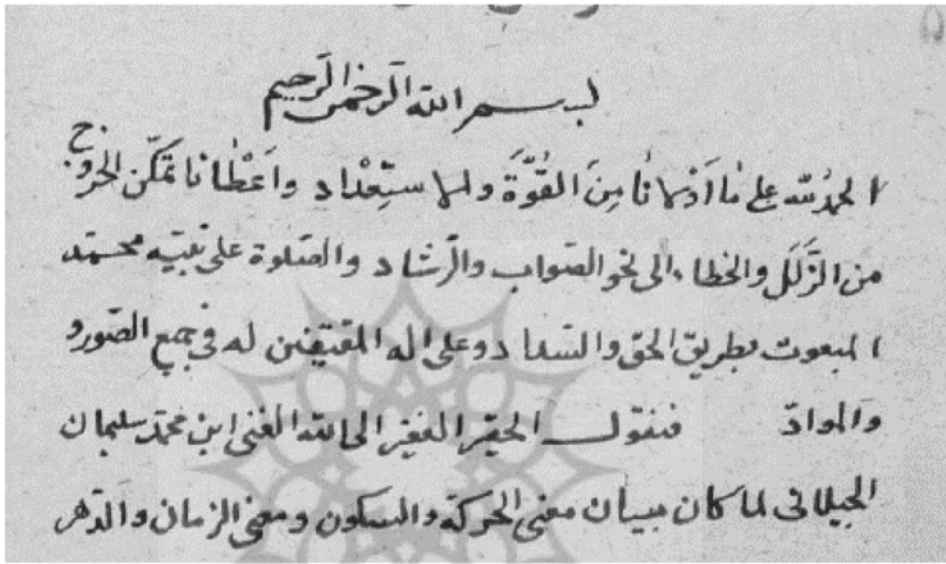 بسم الله الرحمن الرحيم
الحمد لله على ما اَذٰانا مِنَ القُوَّةَ والاستِعْداد واَعْطٰانا تمكّن الخروج
من الزَّلَل والخطاء الى نحو الصّواب والرّشاد والصّلوة على نبيّه محمّد
المبعوث بطريق الحق والسّداد وعلى اله المقتفين له فى جميع الصّور و
والموادّ فنقول الحقير الفقير الى الله الغنى ابن محمّد سليمان
الجيلانى لما كان بيان معنى الحركة والسكون ومعنى الزمان والدّهر